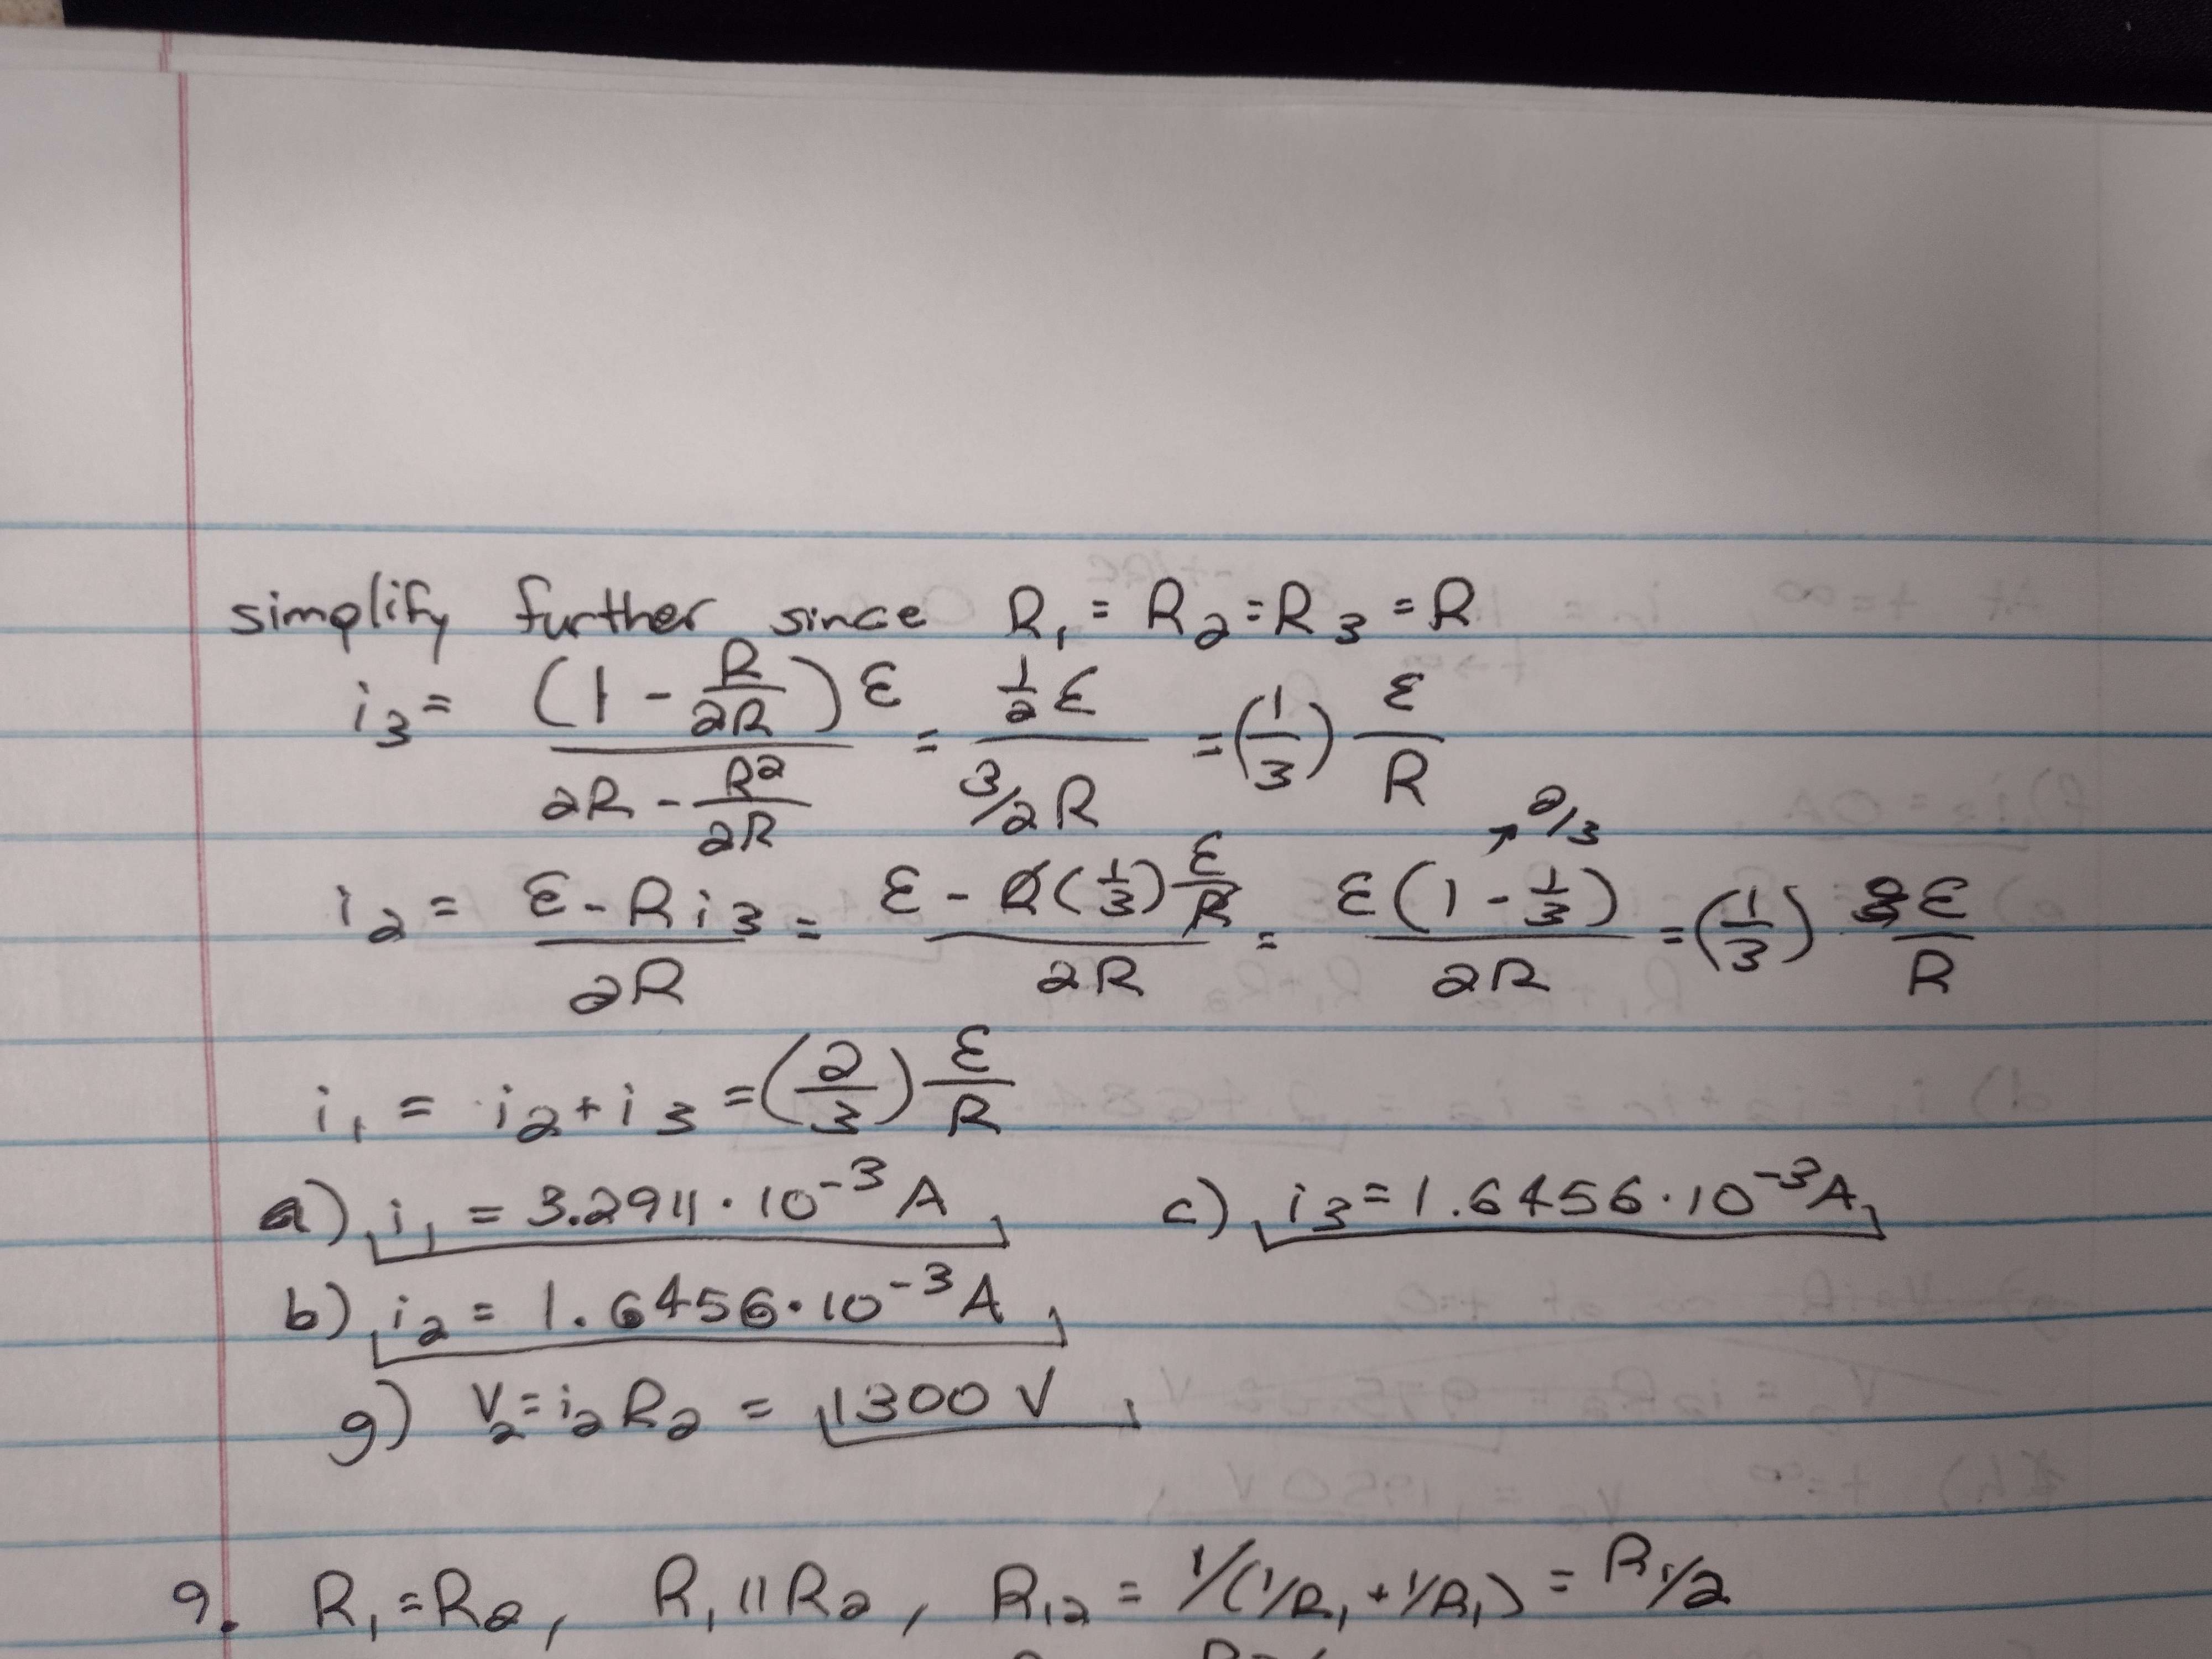 simplify further since R₁ = R₂ = R₃ = R
i₃ = (1 - R/2R)ε / (2R - R²/2R) = ½ε / (3/2 R) = (1/3) ε/R
i₂ = (ε - Ri₃)/2R = (ε - R(1/3)ε/R)/2R = ε(1 - 1/3)/2R = (1/3) ε/R → 2/3
i₁ = i₂ + i₃ = (2/3) ε/R
a) i₁ = 3.2911 · 10⁻³ A c) i₃ = 1.6456 · 10⁻³ A
b) i₂ = 1.6456 · 10⁻³ A
g) V₂ = i₂R₂ = 1300 V
9. R₁ = R₂, R₁ || R₂, R₁₂ = 1/(1/R₁ + 1/R₁) = R₁/2